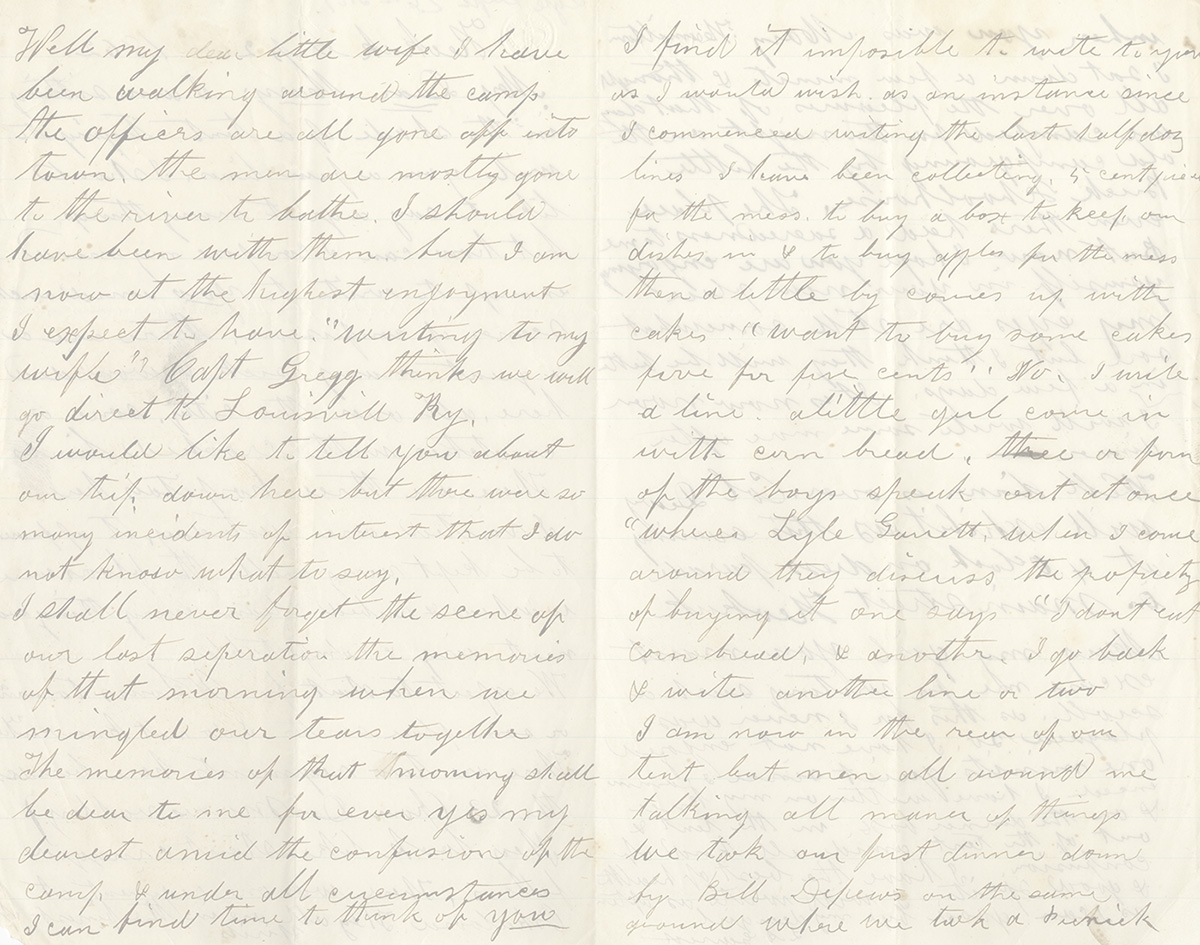 Well my dear little wife I have
been walking around the camp
the officers are all gone off into
town. the men are mostly gone
to the river to bathe. I should
have been with them but I am
now at the highest enjoyment
I expect to have. "writing to my
wife" Capt Gregg thinks we will
go direct to Louisvill Ky.
I would like to tell you about
our trip down here but there were so
many incidents of interest that I do
not know what to say.
I shall never forget the scene of
our last seperation the memories
of that morning when we
mingled our tears together
The memories of that morning shall
be dear to me for ever yes my
dearest amid the confusion of the
camp & under all circumstances
I can find time to think of you
I find it imposible to write to you
as I would wish. as an instance since
I commenced writing the last half doz
lines I have been collecting, 5 cent piece
for the mess. to buy a box to keep our
dishes in & to buy apples for the mess
then a little boy comes up with
cakes. "want to buy some cakes
five for five cents" No, I write
a line. a little girl come in
with corn bread, three or four
of the boys speak out at once
"wheres Lyle Garrett, when I come
around they discuss the propriety
of buying it one says "I dont eat
corn bread, & another. I go back
& write another line or two
I am now in the rear of our
tent but men all around me
talking all maner of things
we took our first dinner down
by Bill Depews on the same
ground where we took a picnick